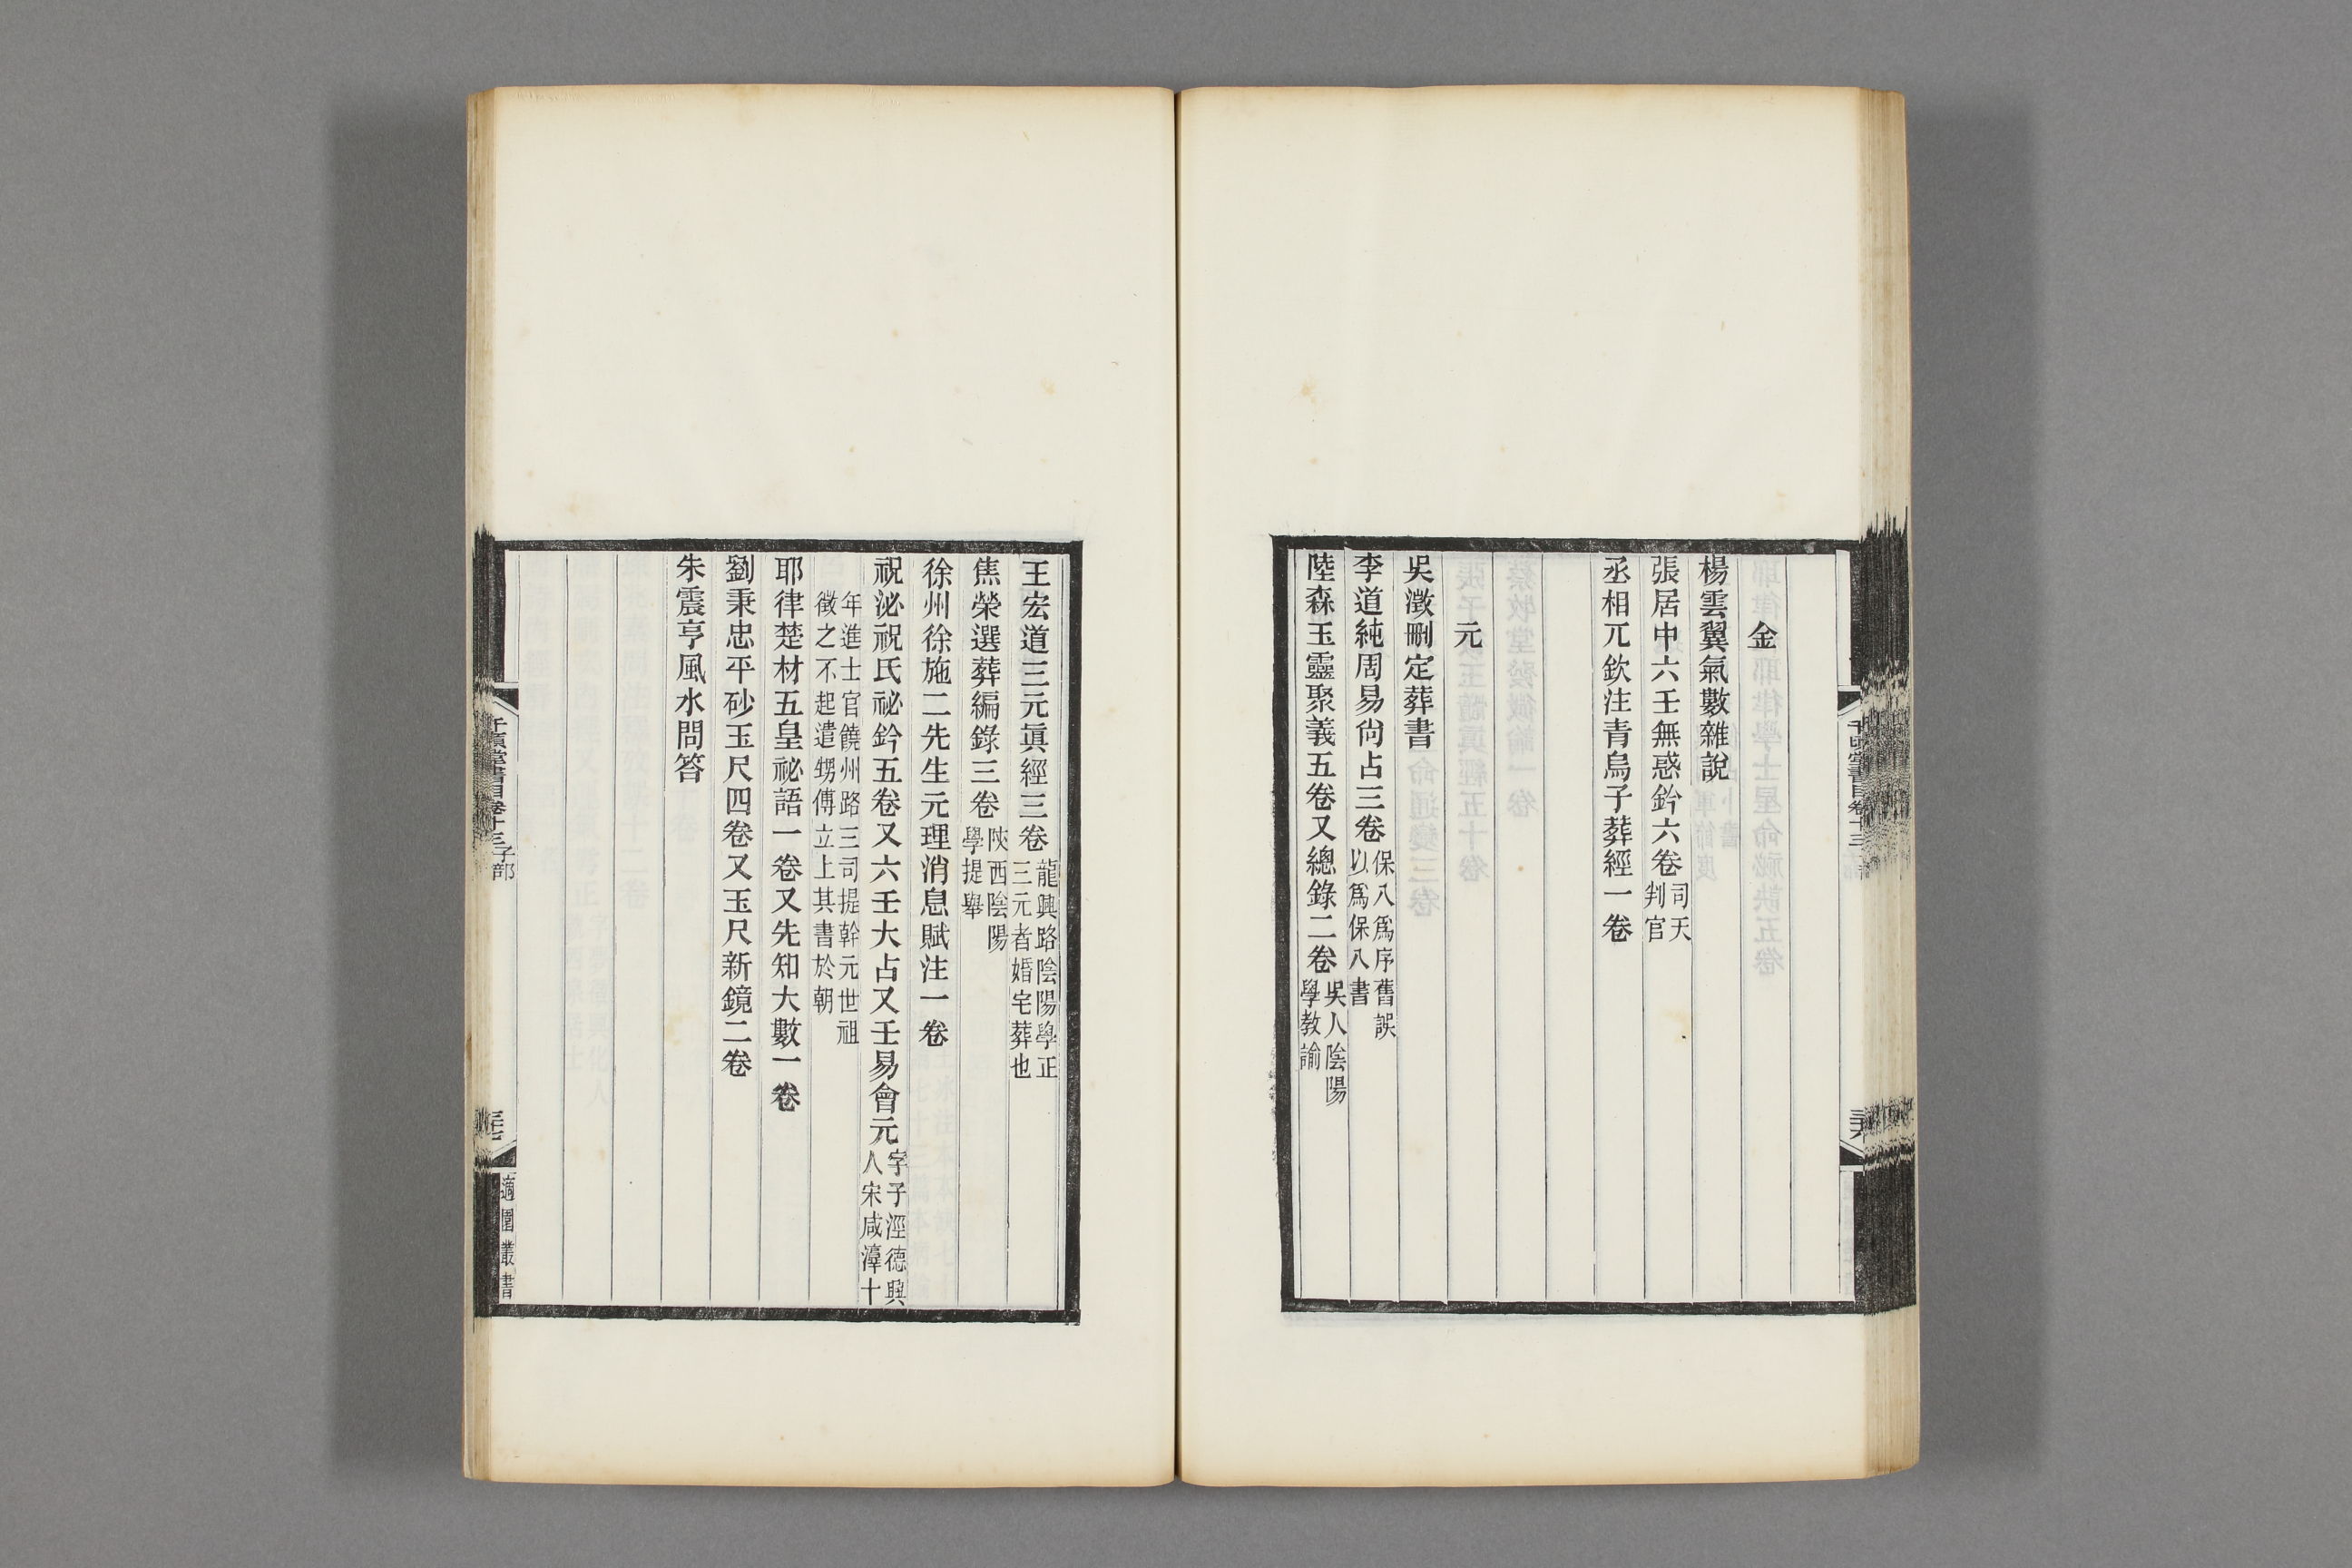 金
楊雲翼氣數雜說
張居中六壬無惑鈐六卷司天判官
丞相兀欽注青烏子葬經一卷
元
吳澂刪定葬書
李道純周易尙占三卷保八爲序舊誤以爲保八書
陸森玉靈聚義五卷又總錄二卷吳人陰陽學教諭
王宏道三元眞經三卷龍興路陰陽學正三元者婚宅葬也
焦榮選葬編錄三卷陝西陰陽學提舉
徐州徐施二先生元理消息賦注一卷
祝泌祝氏祕鈐五卷又六壬大占又壬易會元字子涇德興人宋咸漳十
年進士官饒州路三司提幹元世祖徵之不起遣甥傅立上其書於朝
耶律楚材五皇祕語一卷又先知大數一卷
劉秉忠平砂玉尺四卷又玉尺新鏡二卷
朱震亨風水問答
千頃堂書目卷十三子部
適園叢書